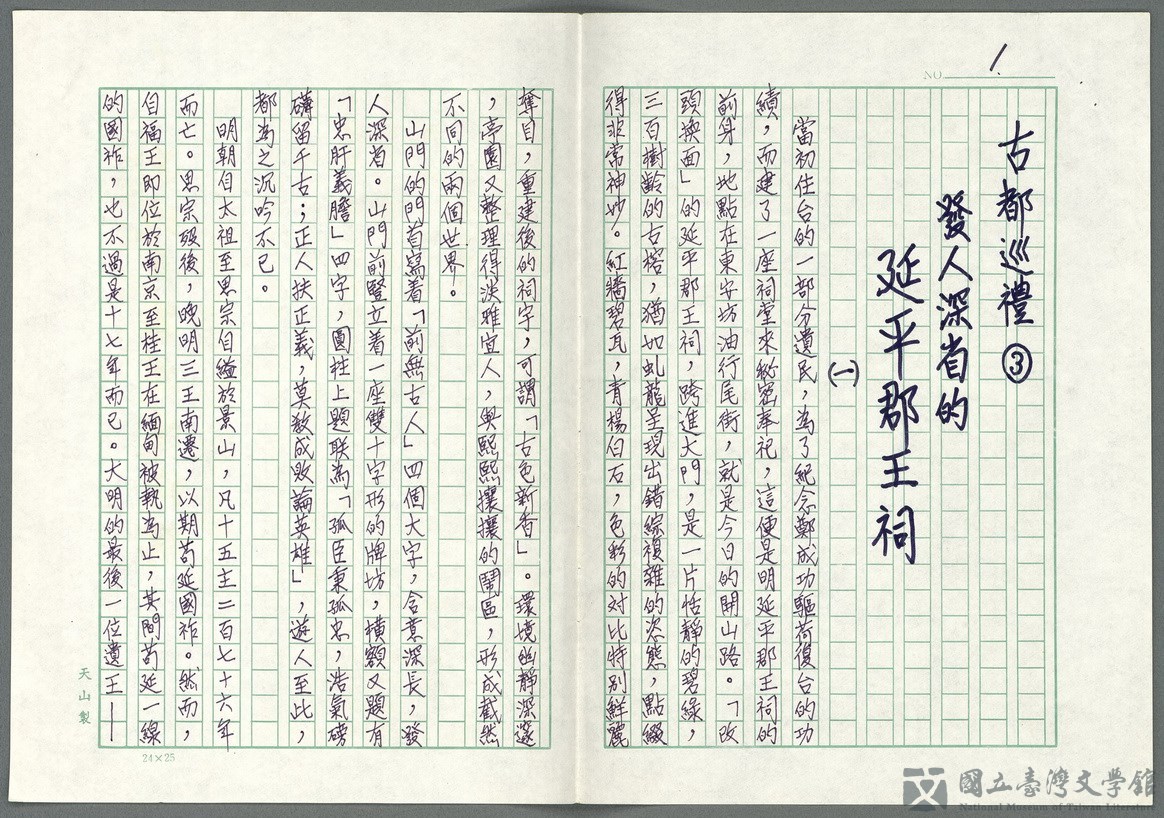 NO. 1
古都巡禮③
發人深省的
延平郡王祠
(一)
當初住台的一部分遺民，為了紀念鄭成功驅荷復台的功
績，而建了一座祠堂來秘密奉祀，這便是明延平郡王祠的
前身，地點在東安坊油行尾街，就是今日的開山路。「改
頭換面」的延平郡王祠，跨進大門，是一片恬靜的碧綠，
三百樹齡的古榕，猶如虬龍呈現出錯綜複雜的姿態，點綴
得非常神妙。紅牆碧瓦，青楊白石，色彩的對比特別鮮麗
奪目，重建後的祠宇，可謂「古色新香」。環境幽靜深邃
，亭園又整理得淡雅宜人，與熙熙攘攘的鬧區，形成截然
不同的兩個世界。
山門的門首寫着「前無古人」四個大字，含意深長，發
人深省。山門前豎立着一座雙十字形的牌坊，橫額又題有
「忠肝義膽」四字，圓柱上題聯為「孤臣秉孤忠，浩氣磅
礡留千古；正人扶正義，莫教成敗論英雄」，遊人至此，
都為之沉吟不已。
明朝自太祖至思宗自縊於景山，凡十五主二百七十六年
而亡。思宗歿後，晚明三王南遷，以期苟延國祚。然而，
自福王即位於南京至桂王在緬甸被執為止，其間苟延一線
的國祚，也不過是十七年而已。大明的最後一位遺王——
天山製
24×25
國立臺灣文學館
National Museum of Taiwan Literature